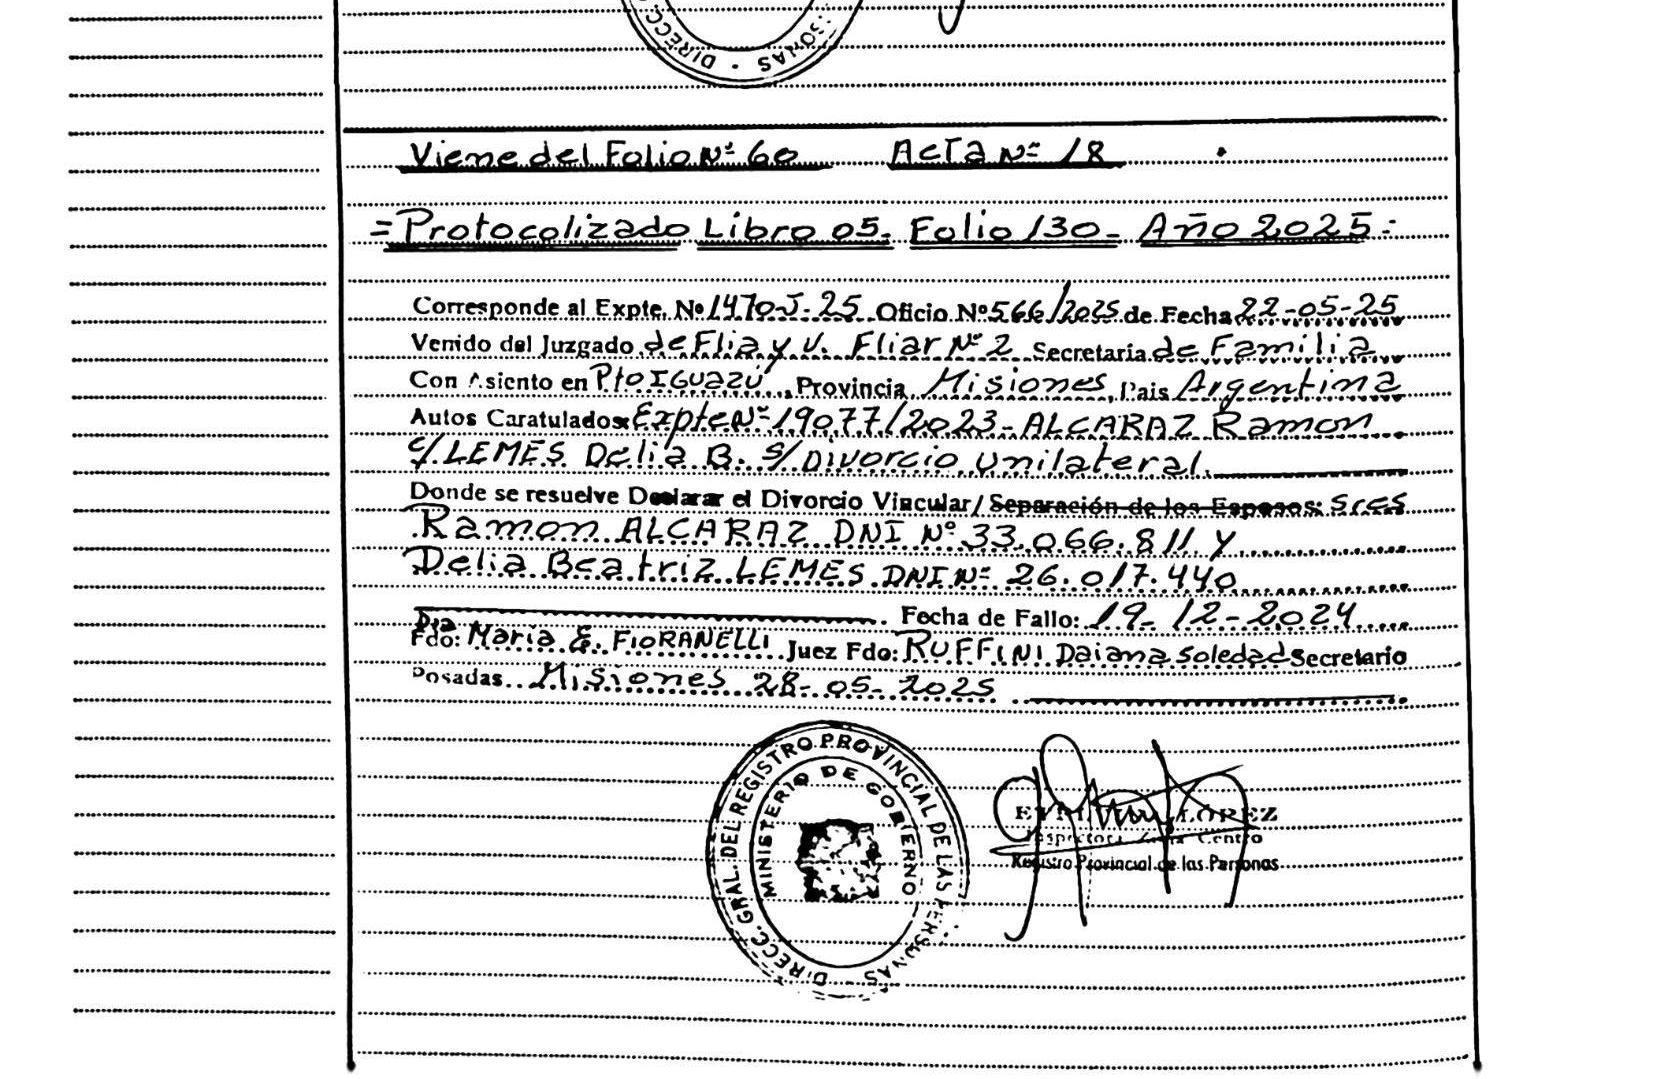 DIRECC. SONAS
Viene del Folio Nº 60 Acta Nº 18
=Protocolizado Libro 05. Folio 130- Año 2025=
Corresponde al Expte. Nº 1470-J-25 Oficio Nº 566/2025 de Fecha 22-05-25
Venido del Juzgado de Flia y V. Fliar Nº 2 Secretaria de Familia
Con Asiento en Pto Iguazú, Provincia Misiones, Pais Argentina
Autos Caratulados Expte Nº 19077/2023- ALCARAZ Ramon
c/ LEMES Delia B. s/ Divorcio Unilateral.
Donde se resuelve Declarar el Divorcio Vincular/ Separación de los Esposos: Sres
Ramon ALCARAZ DNI Nº 33.066.811 y
Delia Beatriz LEMES DNI Nº 26.017.440
Fecha de Fallo: 19-12-2024
Dra
Fdo: Maria E. FIORANELLI Juez Fdo: RUFFINI Daiana Soledad Secretario
Posadas Misiones 28-05-2025
DIRECC. GRAL. DEL REGISTRO PROVINCIAL DE LAS PERSONAS
MINISTERIO DE GOBIERNO
LÓPEZ
Centro
Registro Provincial de las Personas